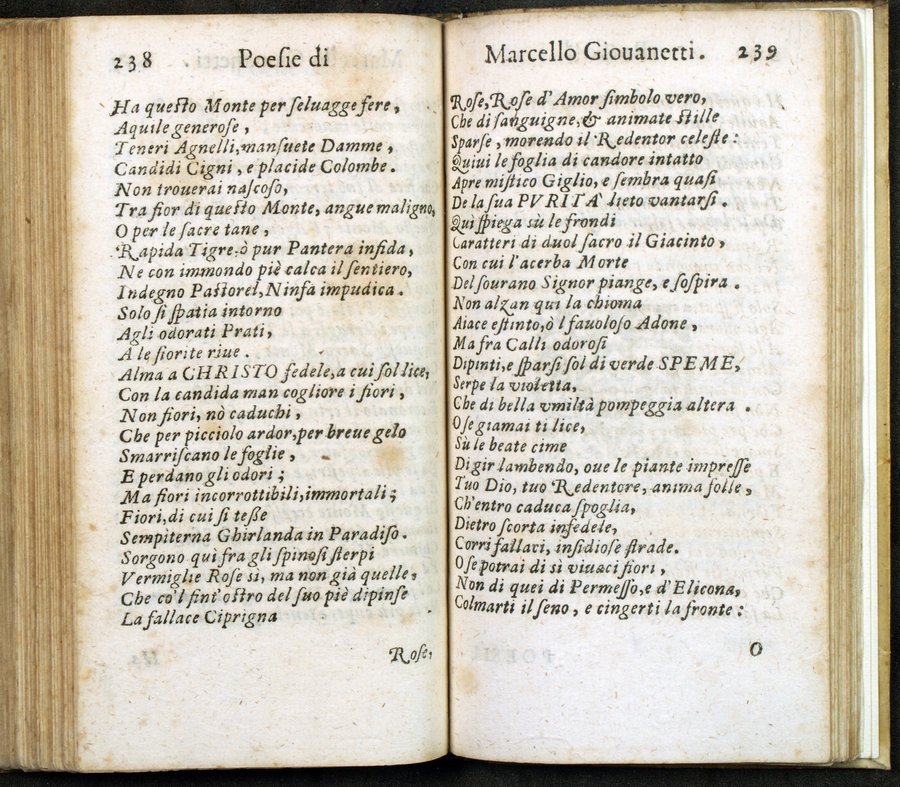 238 Poesie di
Ha questo Monte per seluagge fere,
Aquile generose,
Teneri Agnelli, mansuete Damme,
Candidi Cigni, e placide Colombe.
Non trouerai nascoso,
Tra fior di questo Monte, angue maligno,
O per le sacre tane,
Rapida Tigre, ò pur Pantera infida,
Ne con immondo piè calca il sentiero,
Indegno Pastorel, Ninfa impudica.
Solo si spatia intorno
Agli odorati Prati,
A le fiorite riue.
Alma a CHRISTO fedele, a cui sol lice,
Con la candida man cogliore i fiori,
Non fiori, nò caduchi,
Che per picciolo ardor, per breue gelo
Smarriscano le foglie,
E perdano gli odori;
Ma fiori incorrottibili, immortali;
Fiori, di cui si tesse
Sempiterna Ghirlanda in Paradiso.
Sorgono quì fra gli spinosi sterpi
Vermiglie Rose sì, ma non già quelle,
Che co'l fint'ostro del suo piè dipinse
La fallace Ciprigna
Rose,
Marcello Giouanetti. 239
Rose, Rose d'Amor simbolo vero,
Che di sanguigne, & animate stille
Sparse, morendo il Redentor celeste:
Quiui le foglia di candore intatto
Apre mistico Giglio, e sembra quasi
De la sua PVRITA' lieto vantarsi.
Quì spiega sù le frondi
Caratteri di duol sacro il Giacinto,
Con cui l'acerba Morte
Del sourano Signor piange, e sospira.
Non alzan qui la chioma
Aiace estinto, ò l fauoloso Adone,
Ma fra Calli odorosi
Dipinti, e sparsi sol di verde SPEME,
Serpe la violetta,
Che di bella vmiltà pompeggia altera.
O se giamai ti lice,
Sù le beate cime
Di gir lambendo, oue le piante impresse
Tuo Dio, tuo Redentore, anima folle,
Ch'entro caduca spoglia,
Dietro scorta infedele,
Corri fallaci, insidiose strade.
O se potrai di sì viuaci fiori,
Non di quei di Permesso, e d'Elicona,
Colmarti il seno, e cingerti la fronte:
O